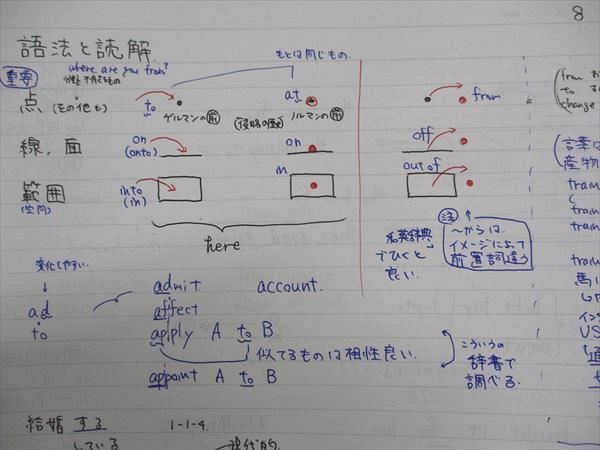 8
語法と読解
重要
where are you from?
もとは同じもの
点
(その他も)
to
ゲルマンの前
at
(侵略の歴史)
ノルマンの前
from
線,面
on
(onto)
on
off
範囲
(空間)
into
(in)
in
out of
here
注
〜からは
イメージによって
前置詞違う
でひくと
良い.
変化しやすい.
ad
to
admit
account.
affect
apply A to B
似てるものは相性良い.
appoint A to B
こういうの
辞書で
調べる.
結婚する
している
1-1-4.
(from
to
change
言葉は
産物
tram
tram
tram
US